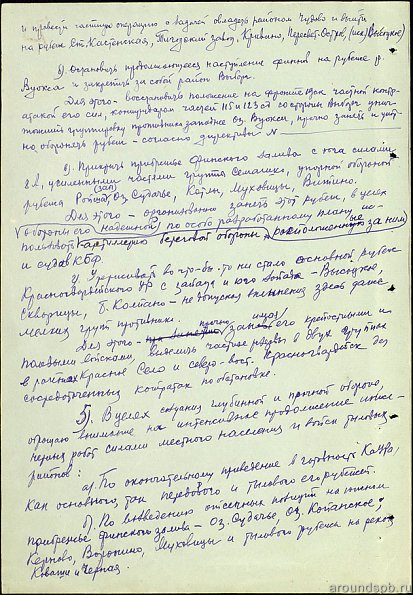 и провести частную операцию с задачей овладеть районом Чудово и выйти
на рубеж Ст. Кастенская, Тигодский завод, Кривино, Пересвет-Остров, (иск) Высоцкое)
б) Остановить продолжающееся наступление финнов на рубеже р.
Вуокса и закрепить за собой район Выборг.
Для этого - восстановить положение на фронте 19 ск частной контр-
атакой его сил, концентрацией частей 115 и 123 сд со стороны Выборг унич-
тожить группировку противника западнее оз. Вуокси, прочно занять и упор-
но оборонять рубеж - согласно директивы N
в) Прикрыть побережье финского залива с юга силами
8 А, усиленными частями группы Семашко, упорной обороной
рубежа (зап) оз. Судачье, Котлы, Муховицы, Витино.
Для этого - организованно занять этот рубеж, в целях
обороны его по особо разработанному плану ис-
пользовать артиллерию береговой обороны, расположенную за ним
и судов КБФ.
г) Удерживать во что-бы-то ни стало основной рубеж
Красногвардейского УР с запада и юго запада - Высоцкое,
Скворицы, б. Колпано - не допуская вклинения здесь даже
мелких групп противника.
Для этого - прочно занять его крепостными и
полевыми войсками, выделить частные резервы в двух группах
в районах Красное Село и северо-вост. Красногвардейск для
сосредоточенных контратак по обстановке.
5) В целях создания глубинной и прочной обороны,
обращаю внимание на интенсивное продолжение инже-
нерных работ силами местного населения и войск тыловых
районов:
а) По окончательному приведению в готовность КаУРа,
как основного, так передового и тылового его рубежей.
б) По возведению отсечных позиций на южном
прибрежье финского залива - оз. Судачье, оз. Копанское,
Керново, Воронино, Муховицы и тылового рубежа на реках
Коваши и Черная.
aroundspb.ru